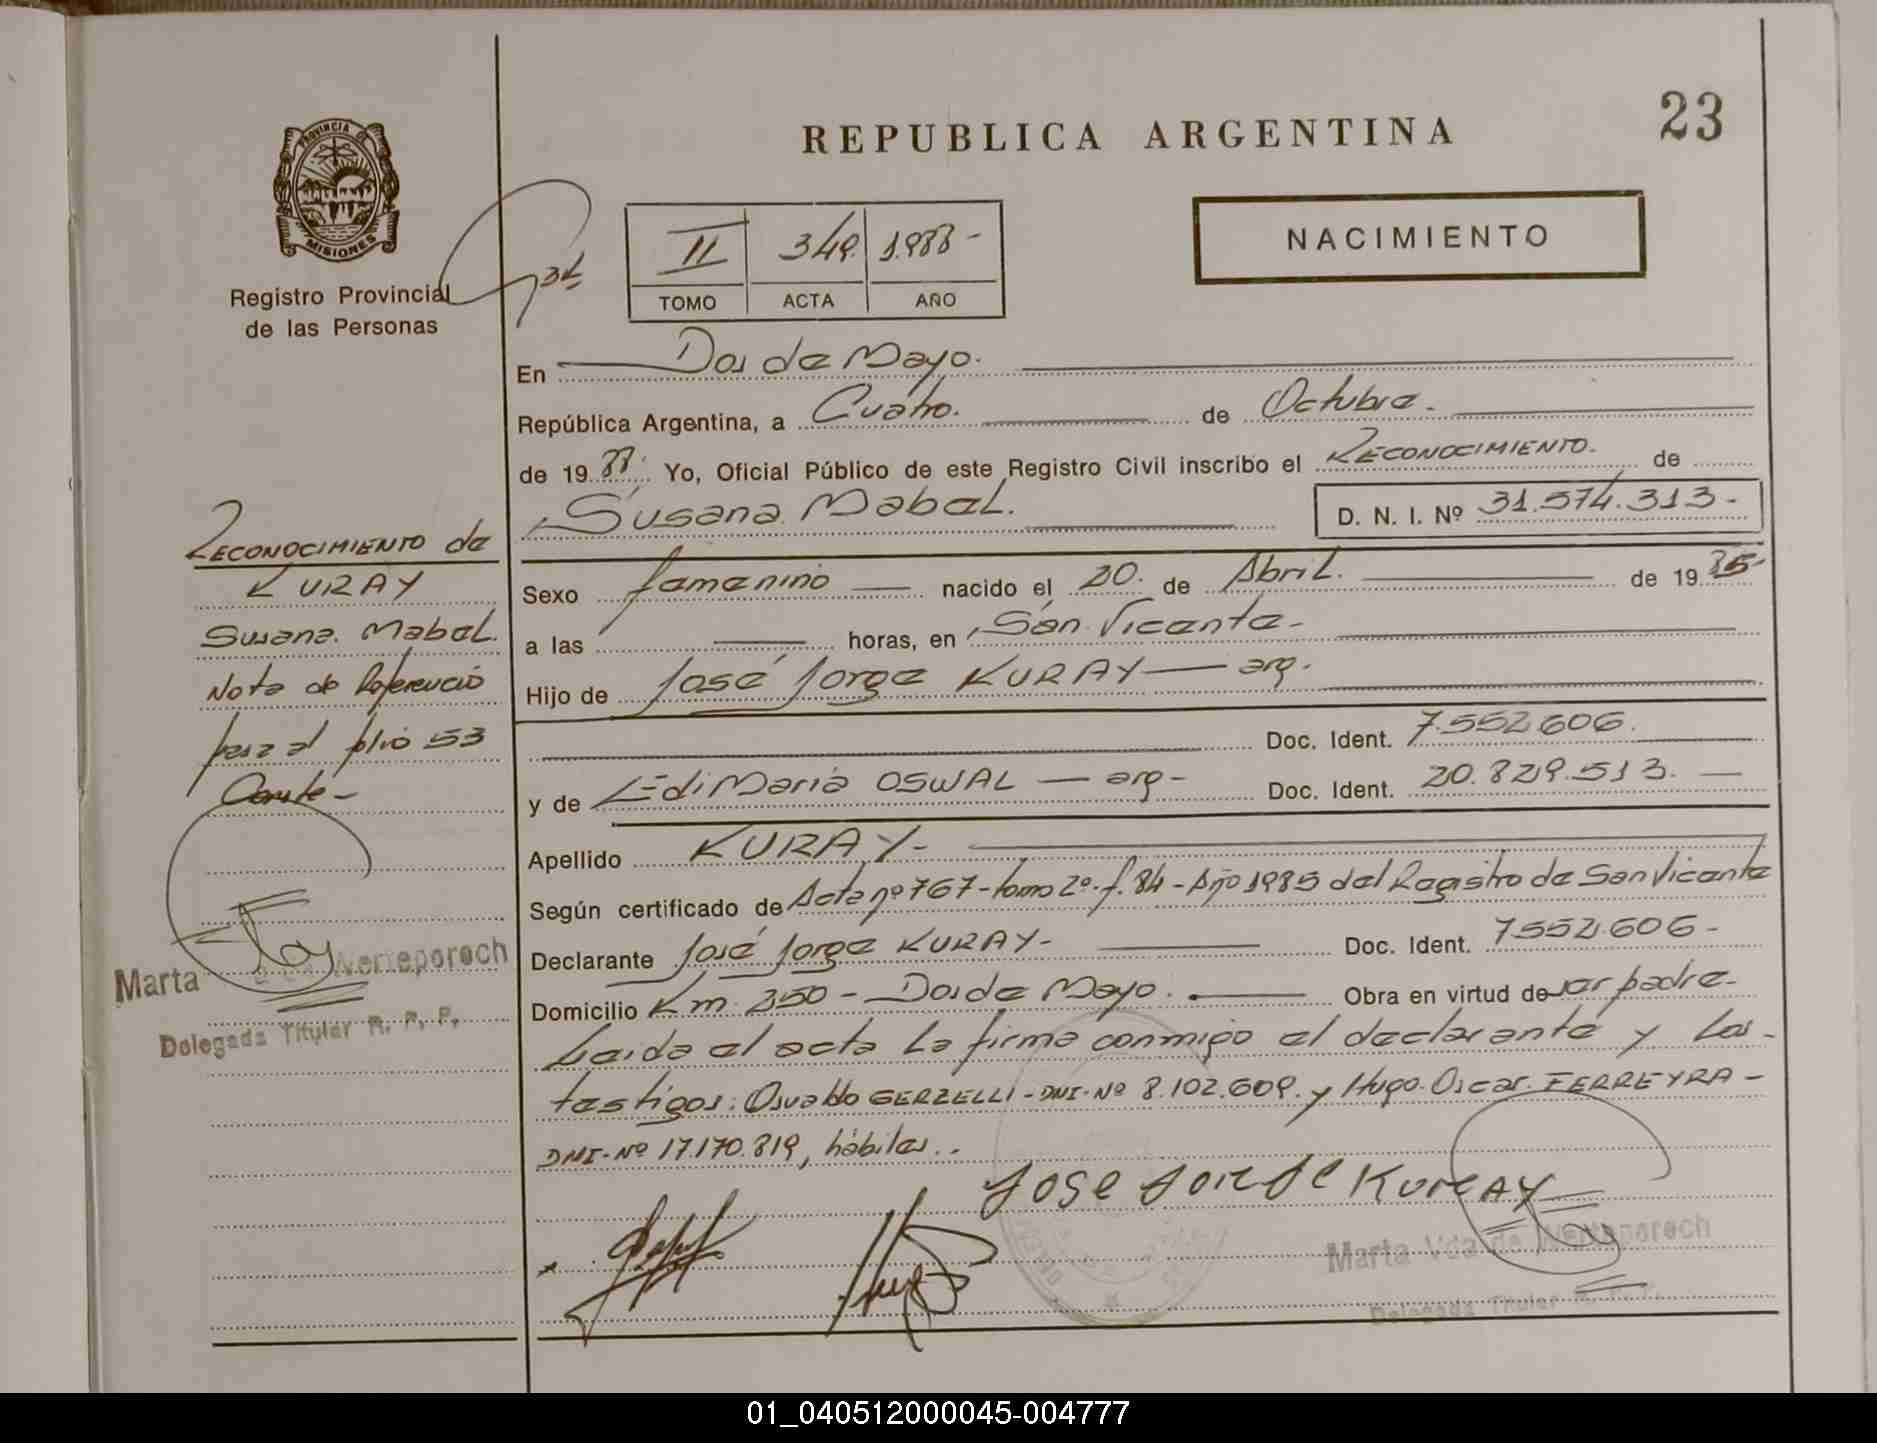 REPUBLICA ARGENTINA
23
PROVINCIA DE
MISIONES
Registro Provincial
de las Personas
II 349. 1.988-
TOMO ACTA AÑO
NACIMIENTO
En Dos de Mayo.
República Argentina, a Cuatro. de Octubre.-
de 1988. Yo, Oficial Público de este Registro Civil inscribo el RECONOCIMIENTO. de
Susana Mabel. D. N. I. Nº 31.574.313-
Sexo femenino nacido el 20. de Abril. de 1985-
a las horas, en San Vicente-
Hijo de José Jorge KURAY — arg.
Doc. Ident. 7.552.606.
y de Edi Maria OSWAL — arg- Doc. Ident. 20.829.513. —
Apellido KURAY-
Según certificado de Acta nº 767-tomo 2º-f.84-Año 1985 del Registro de San Vicente
Declarante José Jorge KURAY- Doc. Ident. 7.552.606-
Domicilio Km. 250 - Dos de Mayo. Obra en virtud de ser padre-
Leida el acta la firma conmigo el declarante y los-
testigos: Osvaldo GERZELLI-DNI-Nº 8.102.609. y Hugo Oscar FERREYRA-
DNI-Nº 17.170.819, hábiles..-
JOSE JORGE KURAY
Marta Vda de Werteporoch
Delegada Titular R. P. P.
RECONOCIMIENTO de
KURAY
Susana Mabel.
Nota de Referencia
pasa al folio 53
Conste-
Marta Vda de Werteporoch
Delegada Titular R. P. P.
01_040512000045-004777